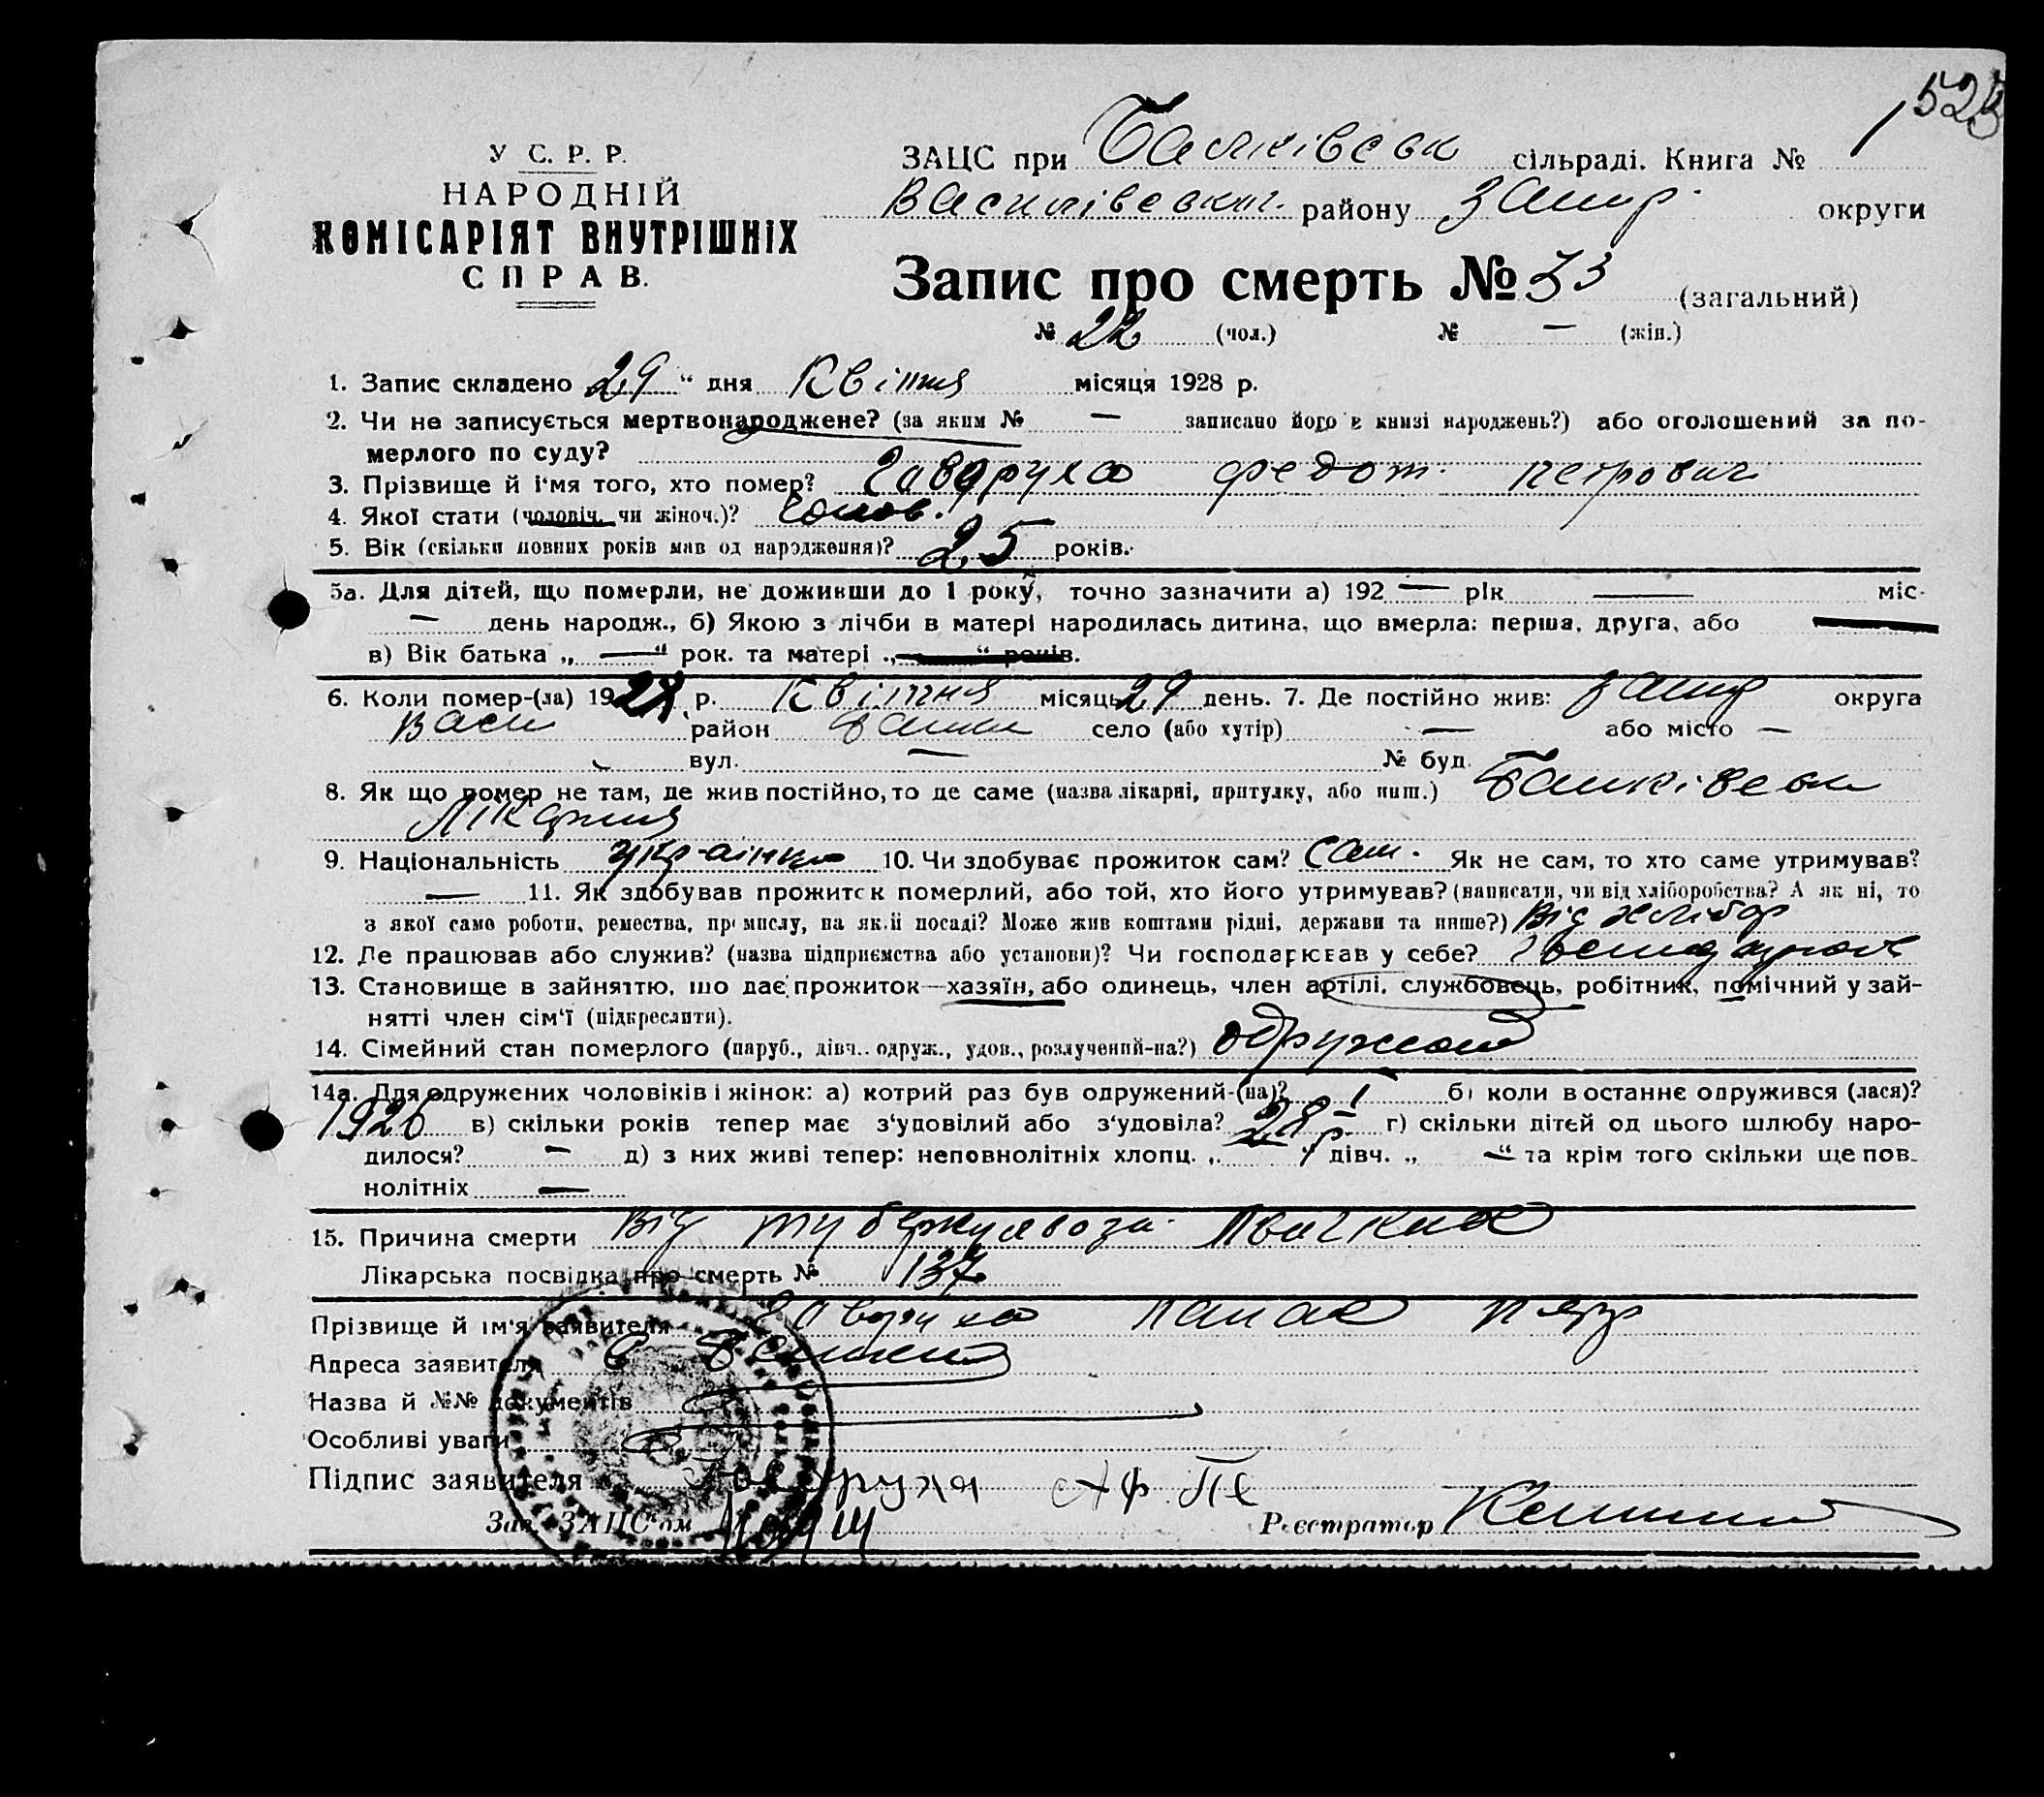 523
У С. Р. Р.
НАРОДНІЙ
КОМІСАРІЯТ ВНУТРІШНІХ
СПРАВ.
ЗАЦС при Балківськ сільраді. Книга № 1
Василівськог. району Запор. округи
Запис про смерть № 33 (загальний)
№ 22 (чол.) № — (жін.)
1. Запис складено 29 “ дня Квітня місяця 1928 р.
2. Чи не записується мертвонароджене? (за яким № — записано його в книзі народжень?) або оголошений за по-
мерлого по суду?
3. Прізвище й і'мя того, хто помер? Гаврруха Федот Петрович
4. Якої стати (чоловіч. чи жіноч.)? Чолов.
5. Вік (скільки повних років мав од народження)? 25 років.
5а. Для дітей, що померли, не доживши до 1 року, точно зазначити а) 192 — рік — міс.
— день народж., б) Якою з лічби в матері народилась дитина, що вмерла: перша, друга, або —
в) Вік батька „ — “ рок. та матері „ — “ років.
6. Коли помер-(ла) 1928 р. Квітня місяць 29 день. 7. Де постійно жив: Запор округа
Васи район Балки село (або хутір) — або місто —
вул. — № буд.
8. Як що помер не там, де жив постійно, то де саме (назва лікарні, притулку, або инш.) Балківськ
Лікарня
9. Національність україннць 10. Чи здобуває прожиток сам? Сам. Як не сам, то хто саме утримував?
— 11. Як здобував прожиток померлий, або той, хто його утримував? (написати, чи від хліборобства? А як ні, то
з якої само роботи, ремества, промислу, на якій посаді? Може жив коштами рідні, держави та инше?) Від хлібор
12. Де працював або служив? (назва підприємства або установи)? Чи господарював у себе?
13. Становище в зайняттю, що дає прожиток—хазяїн, або одинець, член артілі, службовець, робітник, помічний у зай-
нятті член сім'ї (підкреслити).
14. Сімейний стан померлого (паруб., дівч.. одруж., удов., розлучений-на?) одружен
14а. Для одружених чоловіків і жінок: а) котрий раз був одружений-(на)? 1 б) коли в останнє одружився (лася)?
1926 в) скільки років тепер має з'удовілий або з'удовіла? 28 р. г) скільки дітей од цього шлюбу наро-
дилося? — д) з них живі тепер: неповнолітніх хлопц. „ “ дівч. „ — “ та крім того скільки ще пов-
нолітніх —
15. Причина смерти Від туберкульоза
Лікарська посвідка про смерть № 137
Прізвище й ім'я заявителя Панас Петр
Адреса заявителя с Балки
Назва й №№ документів
Особливі уваги
Підпис заявителя Аф Пе
Зав. ЗАЦС'ом Реєстратор